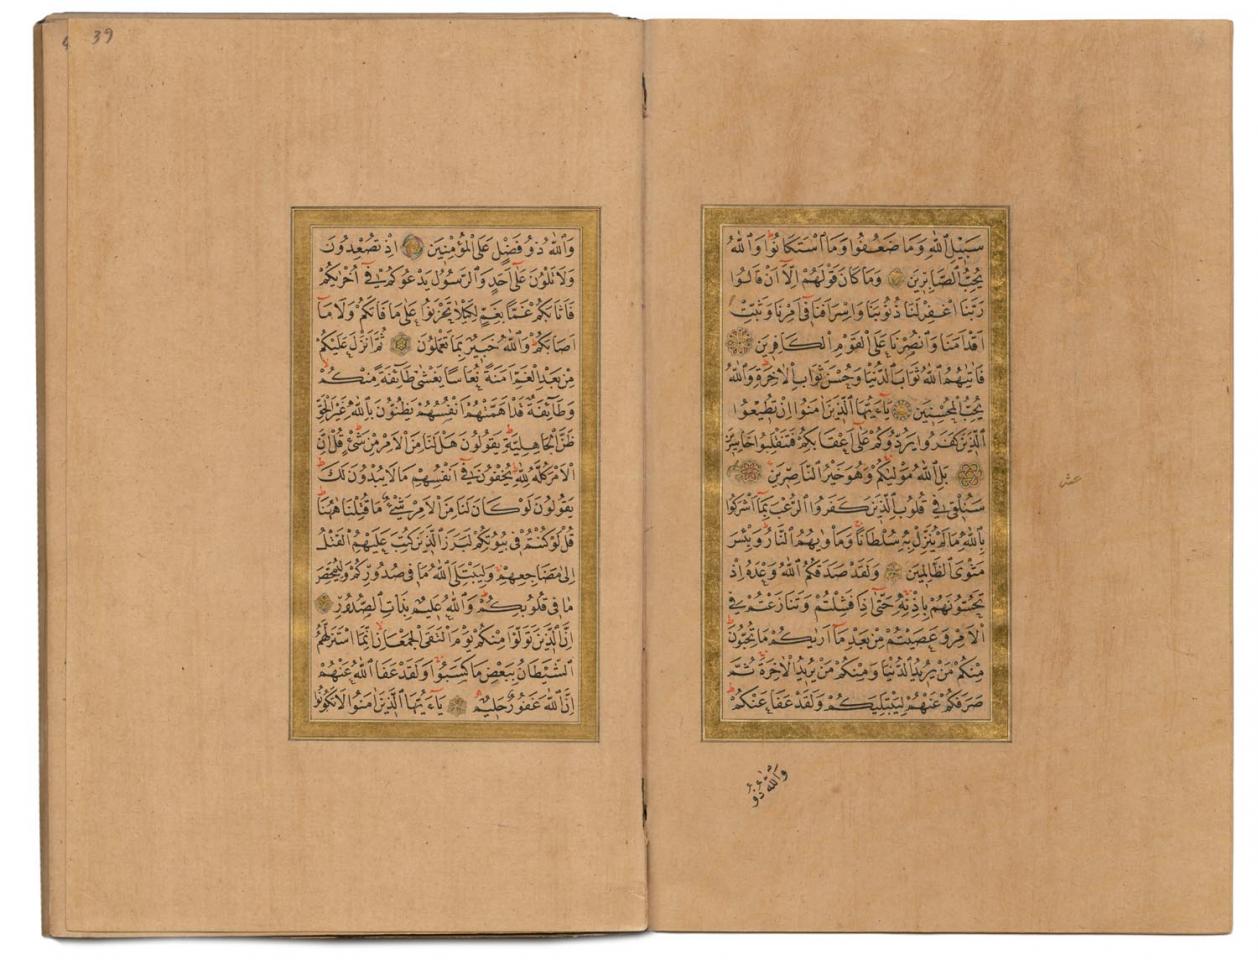 سَبِيلِ ٱللَّهِ وَمَا ضَعُفُوا وَمَا ٱسْتَكَانُوا وَٱللَّهُ
يُحِبُّ ٱلصَّابِرِينَ وَمَا كَانَ قَوْلَهُمْ إِلَّا أَنْ قَالُوا
رَبَّنَا ٱغْفِرْ لَنَا ذُنُوبَنَا وَإِسْرَافَنَا فِى أَمْرِنَا وَثَبِّتْ
أَقْدَامَنَا وَٱنْصُرْنَا عَلَى ٱلْقَوْمِ ٱلْكَافِرِينَ
فَآتٰيهُمُ ٱللَّهُ ثَوَابَ ٱلدُّنْيَا وَحُسْنَ ثَوَابِ ٱلْآخِرَةِ وَٱللَّهُ
يُحِبُّ ٱلْمُحْسِنِينَ يَآءَيُّهَا ٱلَّذِينَ آمَنُوا إِنْ تُطِيعُوا
ٱلَّذِينَ كَفَرُوا يَرُدُّوكُمْ عَلَى أَعْقَابِكُمْ فَتَنْقَلِبُوا خَاسِرِينَ
بَلِ ٱللَّهُ مَوْلٰيكُمْ وَهُوَ خَيْرُ ٱلنَّاصِرِينَ
سَنُلْقِى فِى قُلُوبِ ٱلَّذِينَ كَفَرُوا ٱلرُّعْبَ بِمَا أَشْرَكُوا
بِٱللَّهِ مَا لَمْ يُنَزِّلْ بِهِ سُلْطَانًا وَمَأْوٰيهُمُ ٱلنَّارُ وَبِئْسَ
مَثْوَى ٱلظَّالِمِينَ وَلَقَدْ صَدَقَكُمُ ٱللَّهُ وَعْدَهُ إِذْ
تَحُسُّونَهُمْ بِإِذْنِهِ حَتَّى إِذَا فَشِلْتُمْ وَتَنَازَعْتُمْ فِى
ٱلْأَمْرِ وَعَصَيْتُمْ مِنْ بَعْدِ مَا أَرٰيكُمْ مَا تُحِبُّونَ
مِنْكُمْ مَنْ يُرِيدُ ٱلدُّنْيَا وَمِنْكُمْ مَنْ يُرِيدُ ٱلْآخِرَةَ ثُمَّ
صَرَفَكُمْ عَنْهُمْ لِيَبْتَلِيَكُمْ وَلَقَدْ عَفَا عَنْكُمْ
عشر
وَٱللَّهُ ذُو
39
وَٱللَّهُ ذُو فَضْلٍ عَلَى ٱلْمُؤْمِنِينَ إِذْ تُصْعِدُونَ
وَلَا تَلْوُنَ عَلَى أَحَدٍ وَٱلرَّسُولُ يَدْعُوكُمْ فِى أُخْرٰيكُمْ
فَأَثَابَكُمْ غَمًّا بِغَمٍّ لِكَيْلَا تَحْزَنُوا عَلَى مَا فَاتَكُمْ وَلَا مَا
أَصَابَكُمْ وَٱللَّهُ خَبِيرٌ بِمَا تَعْمَلُونَ ثُمَّ أَنْزَلَ عَلَيْكُمْ
مِنْ بَعْدِ ٱلْغَمِّ أَمَنَةً نُعَاسًا يَغْشَى طَائِفَةً مِنْكُمْ
وَطَائِفَةٌ قَدْ أَهَمَّتْهُمْ أَنْفُسُهُمْ يَظُنُّونَ بِٱللَّهِ غَيْرَ ٱلْحَقِّ
ظَنَّ ٱلْجَاهِلِيَّةِ يَقُولُونَ هَلْ لَنَا مِنَ ٱلْأَمْرِ مِنْ شَىْءٍ قُلْ إِنَّ
ٱلْأَمْرَ كُلَّهُ لِلَّهِ يُخْفُونَ فِى أَنْفُسِهِمْ مَا لَا يُبْدُونَ لَكَ
يَقُولُونَ لَوْ كَانَ لَنَا مِنَ ٱلْأَمْرِ شَىْءٌ مَا قُتِلْنَا هٰهُنَا
قُلْ لَوْ كُنْتُمْ فِى بُيُوتِكُمْ لَبَرَزَ ٱلَّذِينَ كُتِبَ عَلَيْهِمُ ٱلْقَتْلُ
إِلَى مَضَاجِعِهِمْ وَلِيَبْتَلِىَ ٱللَّهُ مَا فِى صُدُورِكُمْ وَلِيُمَحِّصَ
مَا فِى قُلُوبِكُمْ وَٱللَّهُ عَلِيمٌ بِذَاتِ ٱلصُّدُورِ
إِنَّ ٱلَّذِينَ تَوَلَّوْا مِنْكُمْ يَوْمَ ٱلْتَقَى ٱلْجَمْعَانِ إِنَّمَا ٱسْتَزَلَّهُمُ
ٱلشَّيْطَانُ بِبَعْضِ مَا كَسَبُوا وَلَقَدْ عَفَا ٱللَّهُ عَنْهُمْ
إِنَّ ٱللَّهَ غَفُورٌ حَلِيمٌ يَآءَيُّهَا ٱلَّذِينَ آمَنُوا لَا تَكُونُوا